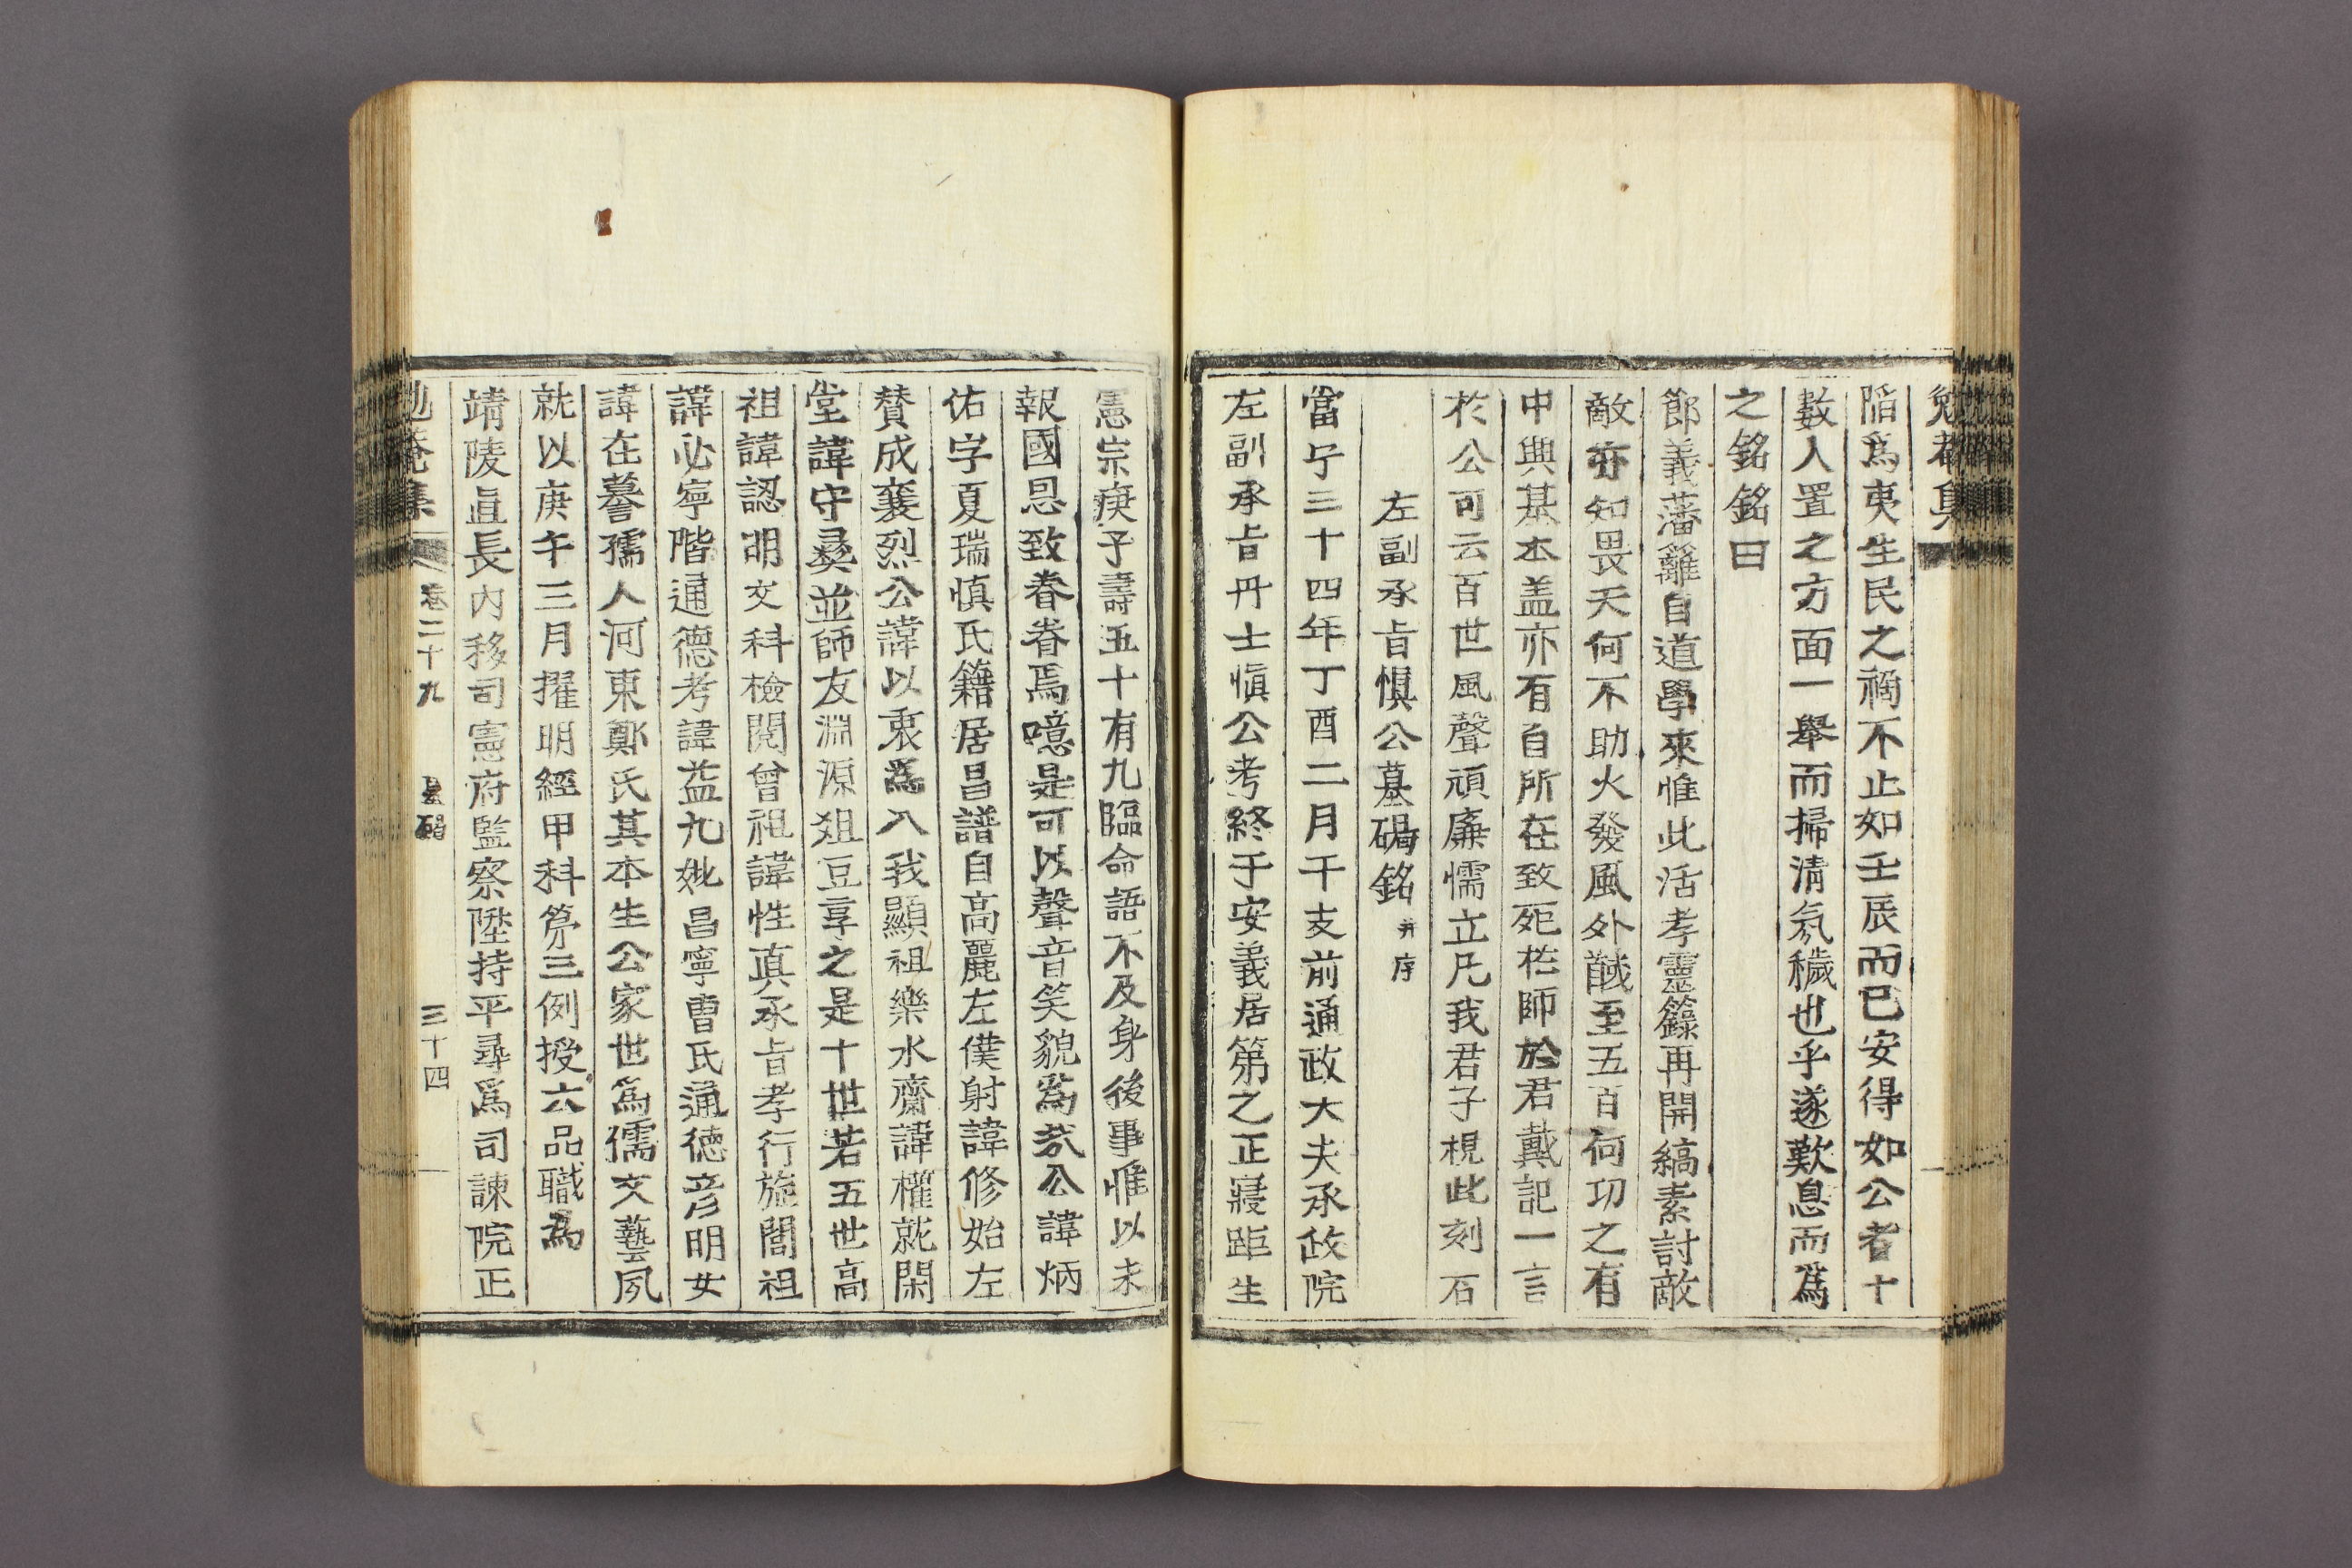 陷爲夷生民之禍不止如壬辰而已安得如公者十
數人置之方面一擧而掃清氛穢也乎遂歎息而爲
之銘銘曰
節義藩籬自道學來惟此活孝靈籙再開縞素討敵
敵亦知畏天何不助火發風外馘至五百何功之有
中興基本盖亦有自所在致死在師於君戴記一言
於公可云百世風聲頑廉懦立凡我君子視此刻石
左副承旨愼公墓碣銘 幷序
當宁三十四年丁酉二月干支前通政大夫承政院
左副承旨丹士愼公考終于安義居第之正寢距生
憲宗庚子壽五十有九臨命語不及身後事惟以未
報國恩致眷眷焉噫是可以聲音笑貌爲㢤公諱炳
佑字夏瑞愼氏籍居昌譜自高麗左僕射諱修始左
賛成襄烈公諱以衷爲入我顯祖樂水齋諱權就閑
堂諱守彝並師友淵源俎豆享之是十世若五世高
祖諱認明文科檢閱曾祖諱性眞承旨孝行旋閭祖
諱必寧階通德考諱益九妣昌寧曺氏通德彦明女
諱在謩孺人河東鄭氏其本生公家世爲儒文藝夙
就以庚午三月擢明經甲科第三例授六品職爲
靖陵直長內移司憲府監察陞持平尋爲司諫院正
勉菴集 卷二十九 墓碣 三十四